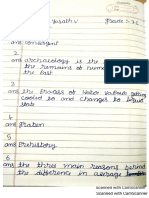 Yasath V Grade :- 7E
ans Convergent
2
ans archaeology is the
the remains of huma
the last
3
ans the process of water vapour getting
cooled to and changes to liquid
state
4
ans graben
5
ans Prehistory
6
ans the three main reasons behind
the difference in average
Scanned with CamScanner
Scanned with CamScanner